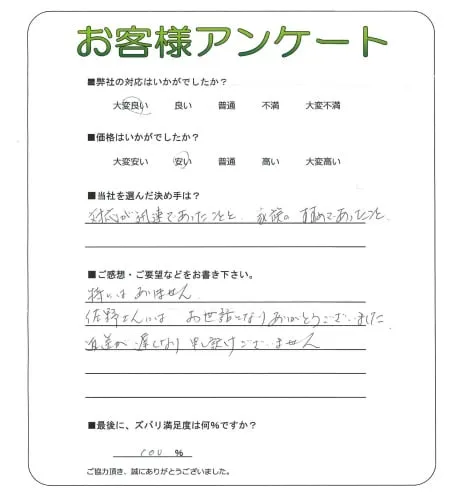 お客様アンケート
■弊社の対応はいかがでしたか？
大変良い 良い 普通 不満 大変不満
■価格はいかがでしたか？
大変安い 安い 普通 高い 大変高い
■当社を選んだ決め手は？
対応が迅速であったことと、家族の 勧めであったこと
■ご感想・ご要望などをお書き下さい。
特にはありません
佐野さんには お世話になりありがとうございました
返送が 遅くなり 申し訳ございません
■最後に、ズバリ満足度は何％ですか？
100 %
ご協力頂き、誠にありがとうございました。